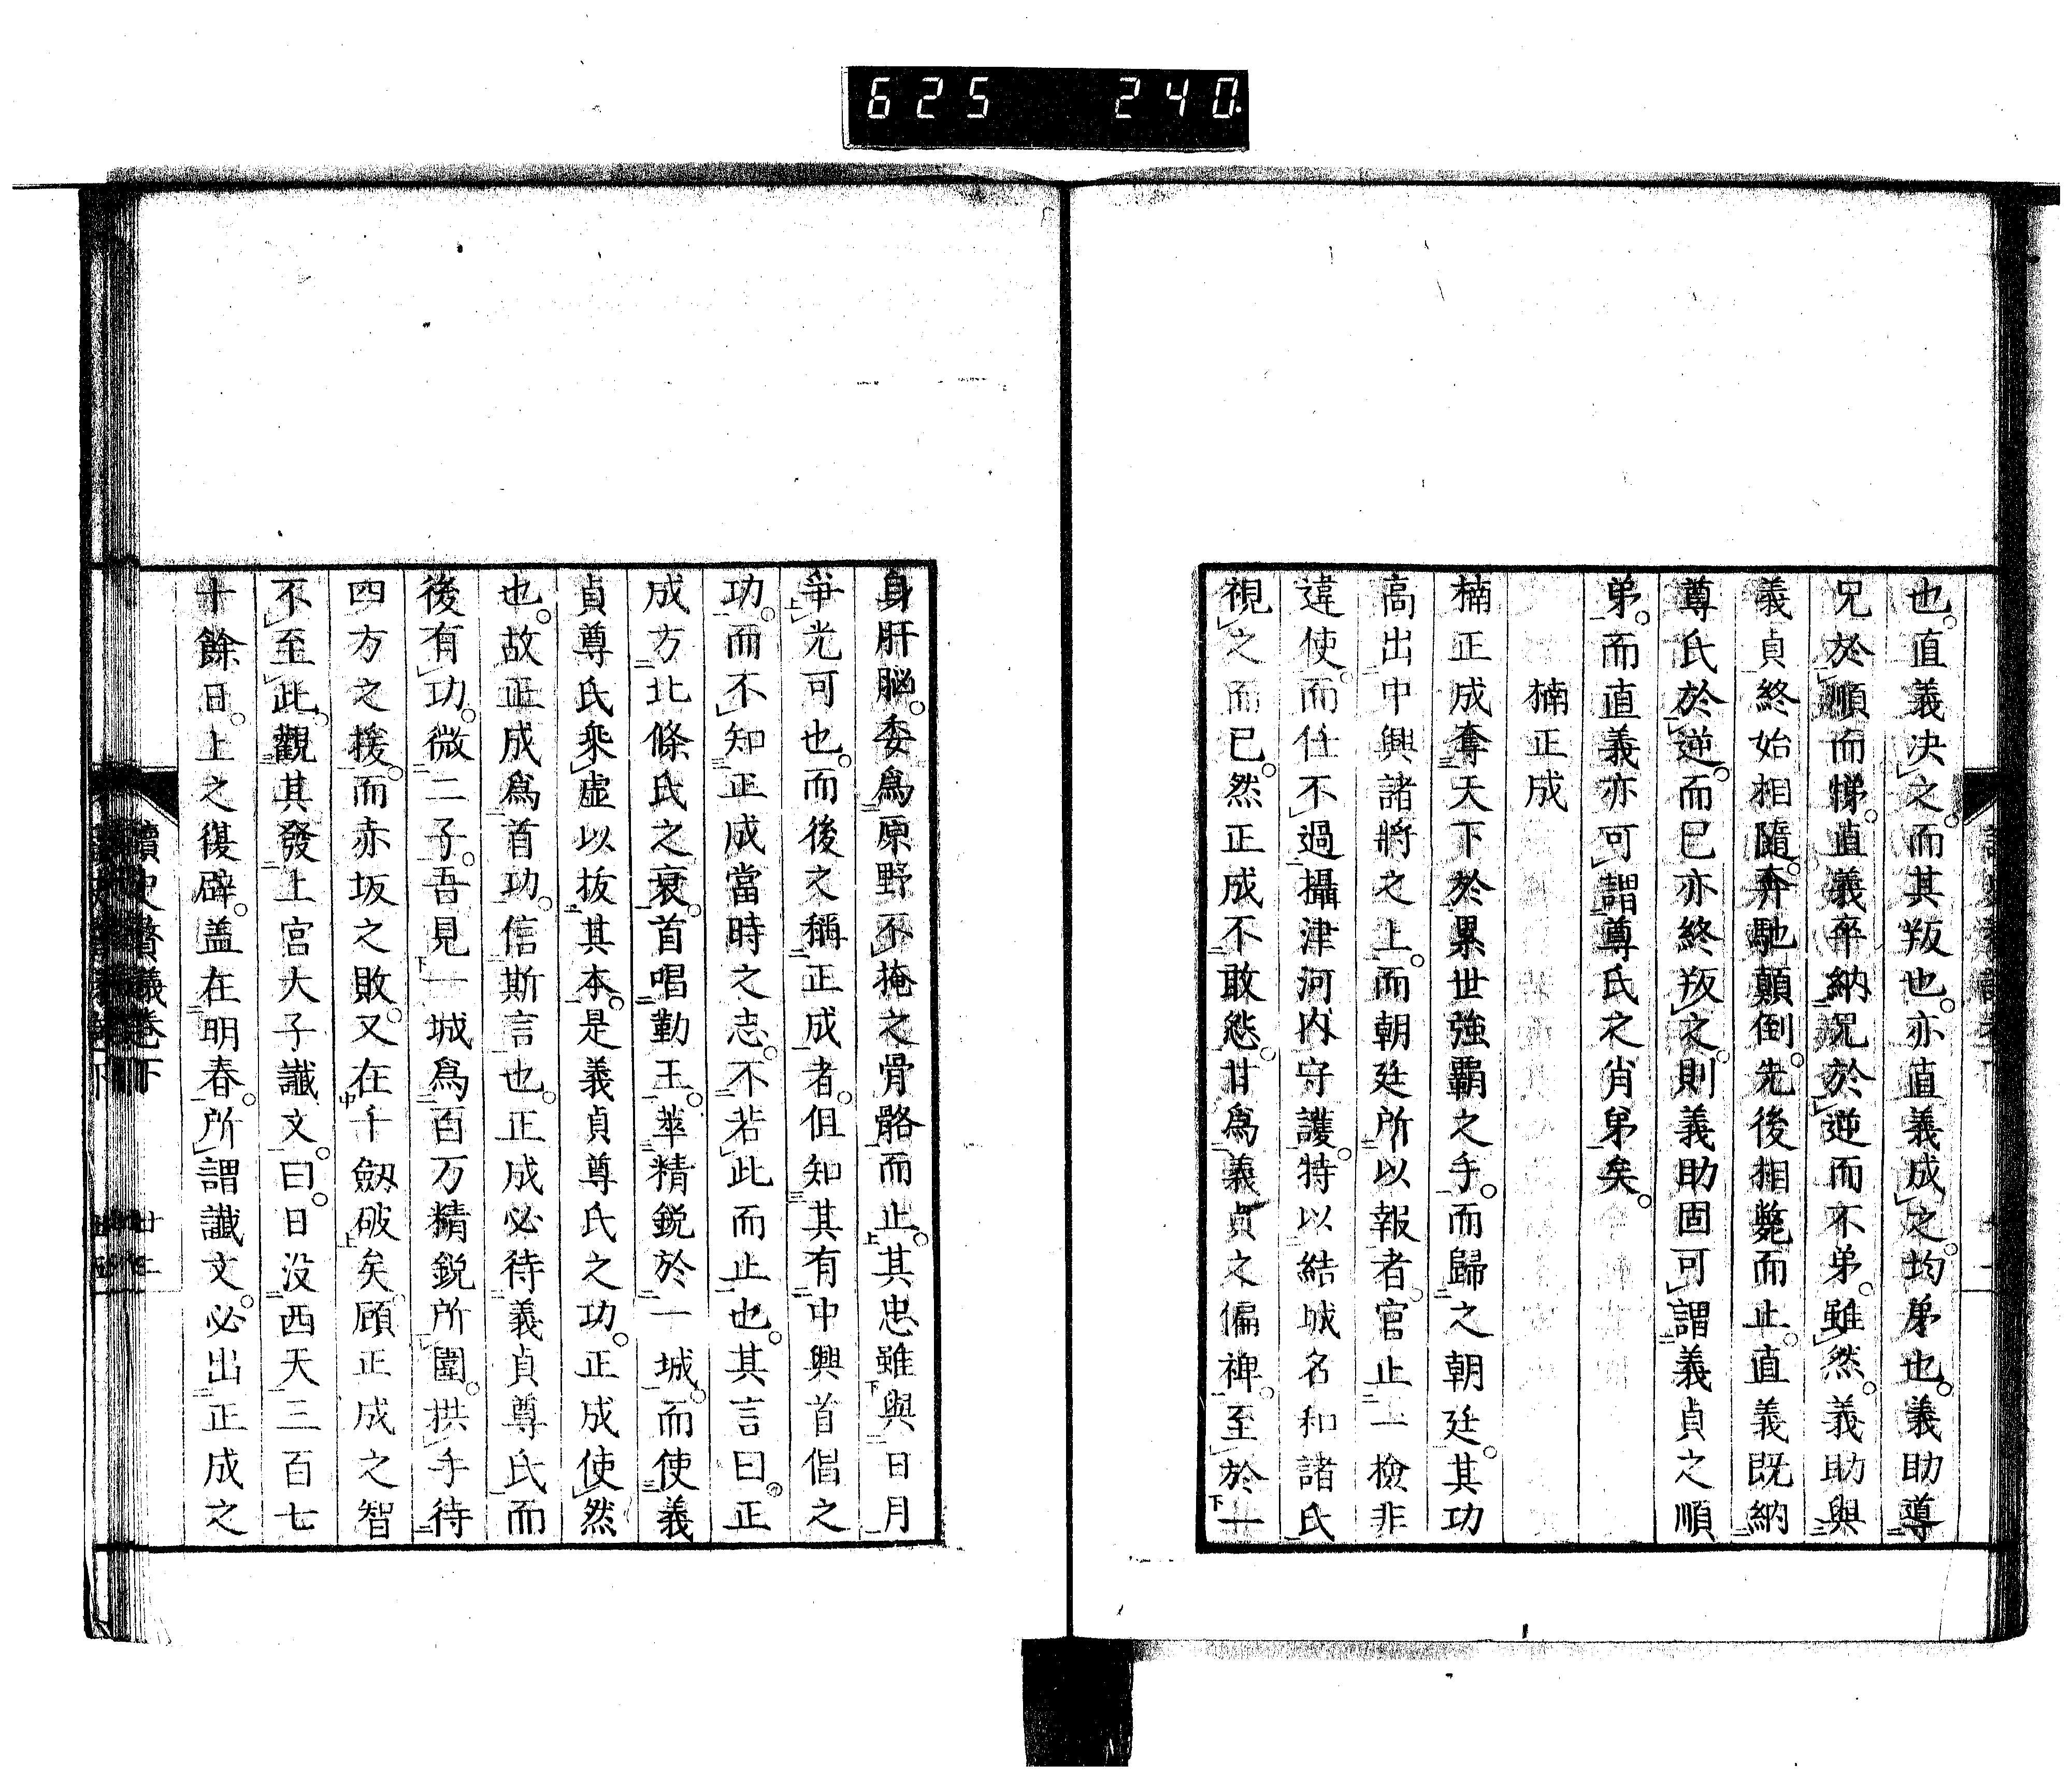 625 240
也。直義决之。而其叛也。亦直義成之。均弟也。義助導
兄於順而悌。直義卒納兄於逆而不弟。雖然。義助與
義貞終始相隨。奔馳顛倒。先後相斃而止。直義既納
尊氏於逆。而已亦終叛之。則義助固可謂義貞之順
弟。而直義亦可謂尊氏之肖弟矣。
楠正成
楠正成奪天下於累世強覇之手。而歸之朝廷。其功
高出中興諸將之上。而朝廷所以報者。官止一檢非
違使。而任不過攝津河内守護。特以結城名和諸氏
視之而已。然正成不敢怨。甘爲義貞之偏裨。至於一
身肝脳。委爲原野不掩之骨骼而止。其忠雖與日月
爭光可也。而後之稱正成者。但知其有中興首倡之
功。而不知正成當時之志。不若此而止也。其言曰。正
成方北條氏之衰。首唱勤王。萃精鋭於一城。而使義
貞尊氏乘虚以抜其本。是義貞尊氏之功。正成使然
也。故正成爲首功。信斯言也。正成必待義貞尊氏而
後有功。微二子。吾見一城爲百万精鋭所圍。拱手待
四方之援。而赤坂之敗。又在千劔破矣。顧正成之智
不至此。觀其發上宮太子讖文。曰。日没西天三百七
十餘日。上之復辟。盖在明春。所謂讖文。必出正成之
讀史贅議卷下